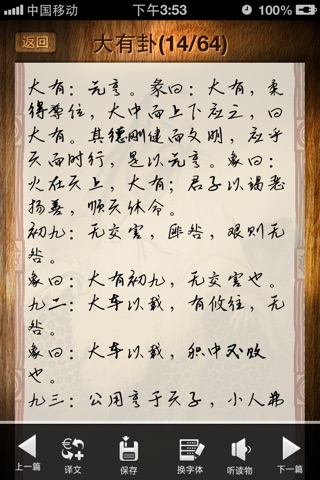 中国移动 下午3:53 100%
返回 大有卦(14/64)
大有：元亨。彖曰：大有，柔
得尊位，大中而上下应之，曰
大有。其德刚健而文明，应乎
天而时行，是以元亨。象曰：
火在天上，大有；君子以遏恶
扬善，顺天休命。
初九：无交害，匪咎，艰则无
咎。
象曰：大有初九，无交害也。
九二：大车以载，有攸往，无
咎。
象曰：大车以载，积中不败
也。
九三：公用亨于天子，小人弗
上一篇 译文 保存 换字体 听读物 下一篇